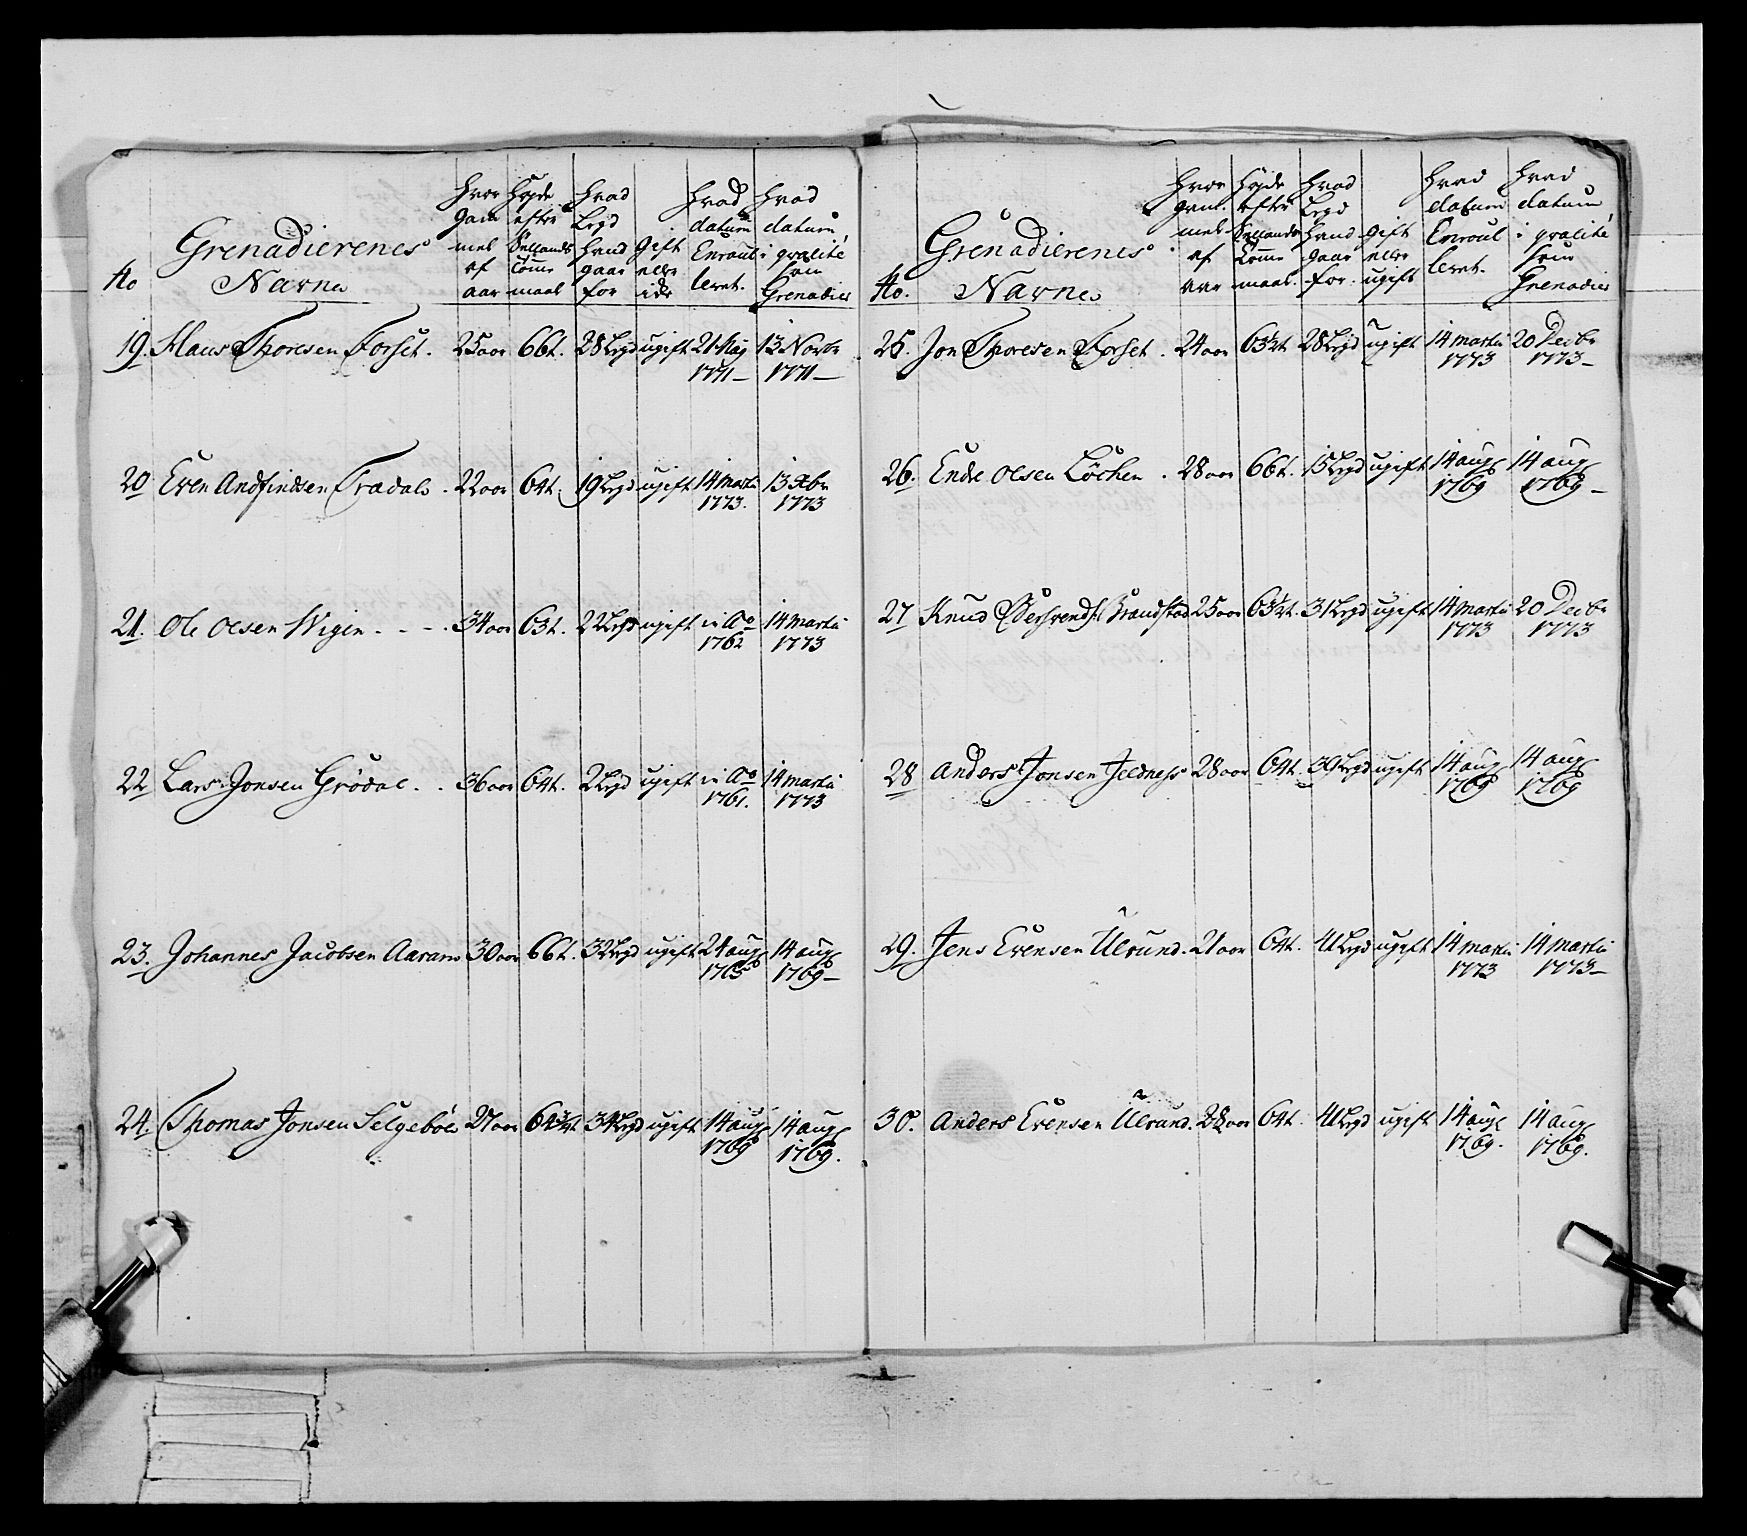 No
Grenadierenes
Navne
hvor gam mel af aar
høyde efter Sællands tomme maal
hvad Legd hand gaar for
gift eller ide
hvad datum Enroulleret.
hvad datum, i qvalité som Grenadier
19. Hans Thoresen Forset. 25 aar 66 t. 28 Legd ugift 21 Maj 1771 — 13 Novbr 1771 —
20 Even Andfindsen Trædals. 22 aar 64 t. 19 Legd ugift 14 Marti 1773. 13 Xbr 1773
21. Ole Olsen Wigen . - - . 34 aar 63 t. 22 Legd ugift in Ao 1762 14 martii 1773
22 Lars Jonsen Grödal . . 36 aar 64 t. 2 Legd ugift in Ao 1761. 14 martii 1773
23. Johannes Jacobsen Aaram 30 aar 66 t. 32 Legd ugift 24 aug 1765 14 aug 1769 —
24. Thomas Jonsen Selgeböe 27 aar 34 Legd ugift 14 aug 1769 14 aug 1769.
No.
Grenadierenes
Navne
hvor gam mel af aar
høyde efter Sællands tomme maal.
hvad Legd hand gaar for.
gift eller ugift
hvad datum Enroul leret.
hvad datum, i qvalité som Grenadier
25. Jon Thoresen Forset. 24 aar 28 Legd ugift 14 martii 1773 20 Decbr 1773 —
26. Ende Olsen Löchen . 28 aar 66 t. 15 Legd ugift 14 aug 1769 14 aug 1769 —
27 Knud Brandstad 25 aar 31 Legd ugift 14 martii 1773 20 Decbr 1773
28 Anders Jonsen Jeldness 28 aar 64 t. 39 Legd ugift 14 aug 1769 14 aug 1769
29. Jens Evensen Ulvund. 21 aar 64 t. 41 Legd ugift 14 martii 1773 14 martii 1773 —
30. Anders Evensen Ulvund. 28 aar 64 t. 41 Legd ugift 14 aug 1769. 14 aug 1769.